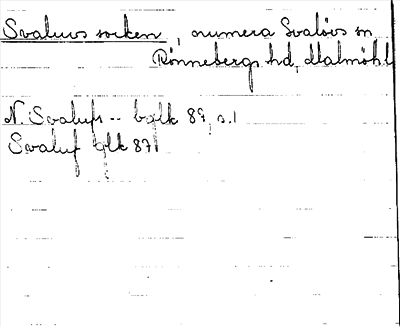 Svaluvs socken, numera Svalövs sn
Rönnebergs hd, Malmöhl
N. Svalufs -- bglk 89, s.1
Svaluf bglk 871